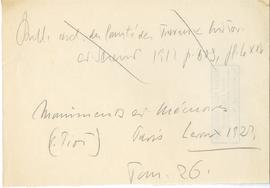 Bull. arch. du Comité des Travaux histor.
et scient. 1912 p.
Monuments et Mémoires
(Piot) Paris Leroux 1923
Tom. 26.